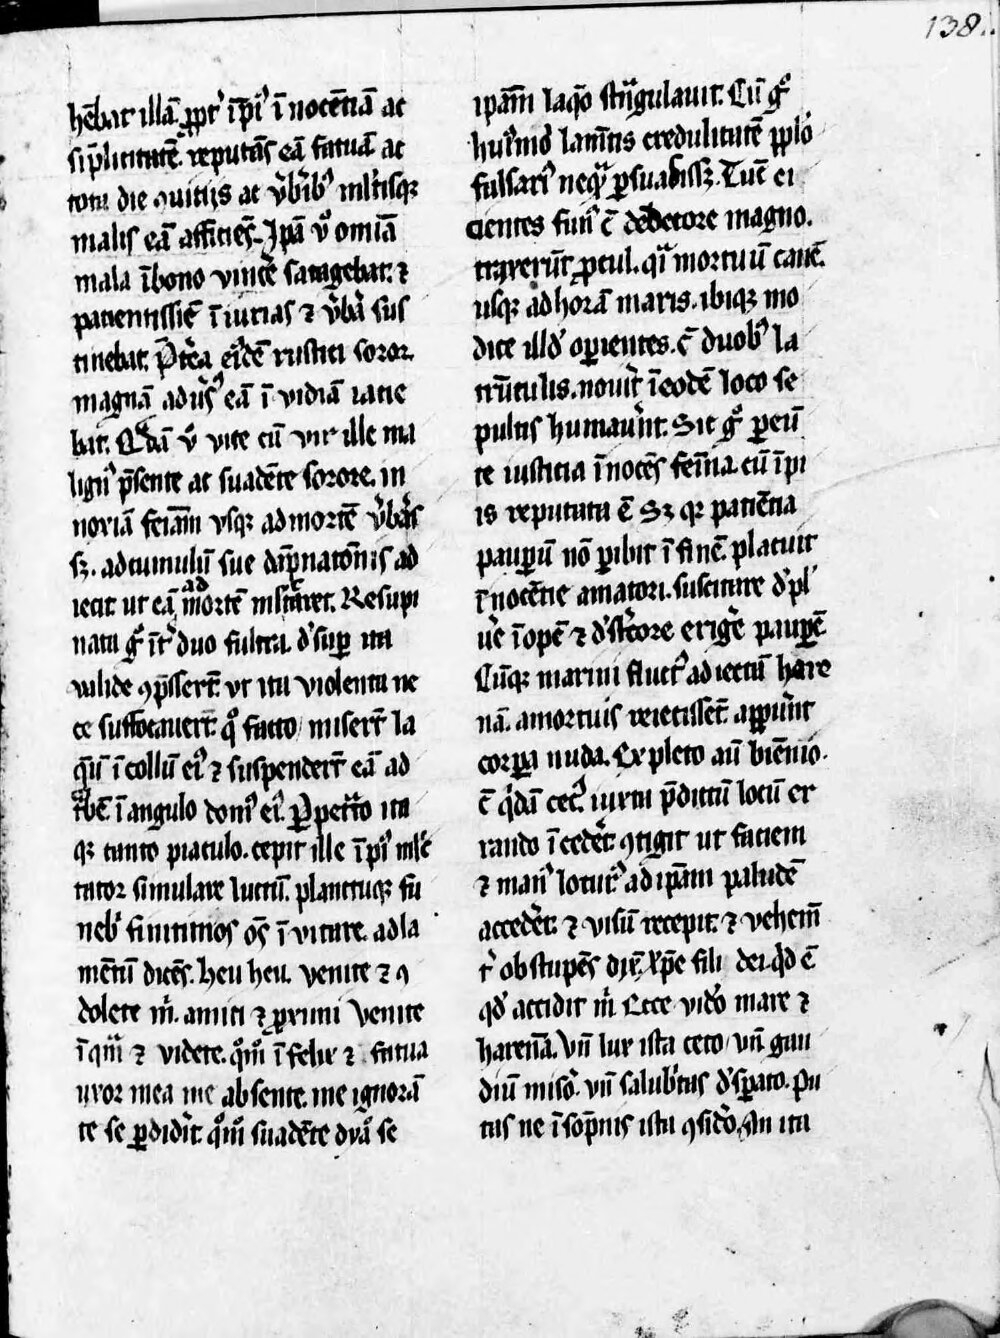 138.
hēbat illā ꝓpt' īp̄i' īnocētiā ac
sīplicitatē reputās eā fatuā ac
tota die ꝯuitijs ac v̓bīb' ml'tisqꝫ
malis eā afficiēs. Jpā v̊ omiā
mala ī bono vincē satagebat. ⁊
patientissīe īiurias ⁊ v̓ba sus
tinebat. Pret̓ea ei'dē rustici soror.
magnā adu̓s' eā īuidiā iacie
bat. Qdā v̊ vice cū vir ille ma
lign' p̄sente ac suadēte sorore. in
noxiā feīam vsqꝫ ad mortē v̓bas
sꝫ. ad cumulū sue dāpnatōnis ad
iecit ut eā ad mortē mīstraret. Resupi
nata gͦ īt' duo fulcra. d'suꝑ ita
valide ꝯp̄sserūt. ut ita violenta ne
ce suffocauert̄. qͦ facto miserūt la
q̄um ī collū ei' ⁊ suspenderūt eā ad
trabē ī angulo dom' ei'. Ꝑpet̓to ita
qꝫ tanto piaculo. cepit ille īpi' mīs
tator simulare luctū. planctuqꝫ fu
neb' finitimos oēs īuitare. ad la
mētū dicēs. Heu heu. venite ⁊ ꝯ
dolete m̓. amici ⁊ ꝓximi venite
īqͣm ⁊ videte. qͦm̄ īfelix ⁊ fatua
uxor mea me absente. me ignorā
te se ꝑdidit. qͦm̄ suadēte dyaͦ se
ipsam laqͦo strīgulauit. Cū gͦ
hui'mōi lamētis credulitatē ꝓplō
falsari' nequa ꝑsuasissꝫ. Tūc ei
cientes fun' ē dedecore magno.
traxerūt ꝓcul. qͣi mortuū canē.
usqꝫ ad horā maris. ibiqꝫ mo
dice illd' oꝑientes. ē duob' la
trūculis. nouit̓ ī eodē loco se
pultis humauer̄t. Sic gͦ ꝑeū
te iusticia īnocēs femīa. cū īpi
is reputata ē. Sꝫ qꝛ patiētia
pauꝑū nō ꝑibit ī finē. placuit
īnocētie amatori. suscitare d'pl'
ue īopē ⁊ d'st̓core erigē pauꝑē.
Cūqꝫ marini fluct' adiectū hare
nā. a mortuis reiecissēt. apparuer̄t
corꝑa nuda. Expleto aūt biēnio.
ē qͥdā cec'. iuxta p̄dictū locū er
rando īcedēs. ꝯtigit ut faciem
⁊ man' lotur' ad ip̄am paludē
accedēt. ⁊ visū recepit. ⁊ vehem̄
t' obstupēs dix̄. xp̄e fili dei. qͥd ē
qd' accidit m̓. Ecce video mare ⁊
harenā. Vn̄ lux ista ceco. vn̄ gau
diū misō. vn̄ salub'tas d'sꝑato. Pu
tas ne ī sōpnis ista ꝯsidōo. An ita